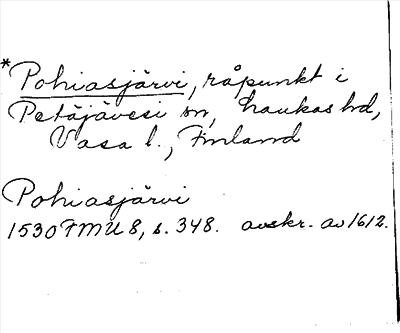 *Pohiasjärvi, råpunkt i
Petäjävesi sn, haukas hd,
Vasa l., Finland
Pohiasjärvi
1530 FMU 8, s. 348. avskr. av 1612.